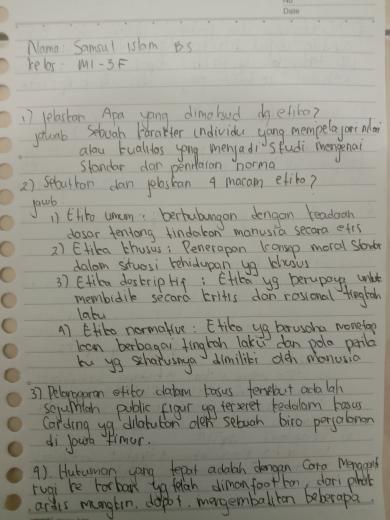 No
Date
Nama: Samsul Islam BS
kelas: MI-3F
1) Jelaskan Apa yang dimaksud dg etika?
jawab Sebuah karakter individu yang mempelajari nilai
atau kualitas yang menjadi studi mengenai
Standar dan penilaian norma
2) Sebutkan dan jelaskan 4 macam etika?
jawb
1) Etika umum: berhubungan dengan keadaan
dasar tentang tindakan manusia secara etis
2) Etika khusus: Penerapan konsep moral standar
dalam situasi kehidupan yg khusus
3) Etika deskriptif: Etika yg berupaya untuk
membidik secara kritis dan rasional tingkah
laku
4) Etika normative: Etika yg berusaha menetap
kan berbagai tingkah laku dan pola perila
ku yg seharusnya dimiliki oleh manusia
3) Pelanggaran etika dalam kasus tersebut adalah
sejumlah public figur yg terseret kedalam kasus
Carding yg dilakukan oleh sebuah biro perjalanan
di Jawa timur.
4) Hukuman yang tepat adalah dengan cara Mengganti
rugi ke korban yg telah dimanfaatkan, dari pihak
artis mungkin dapat mengembalikan beberapa